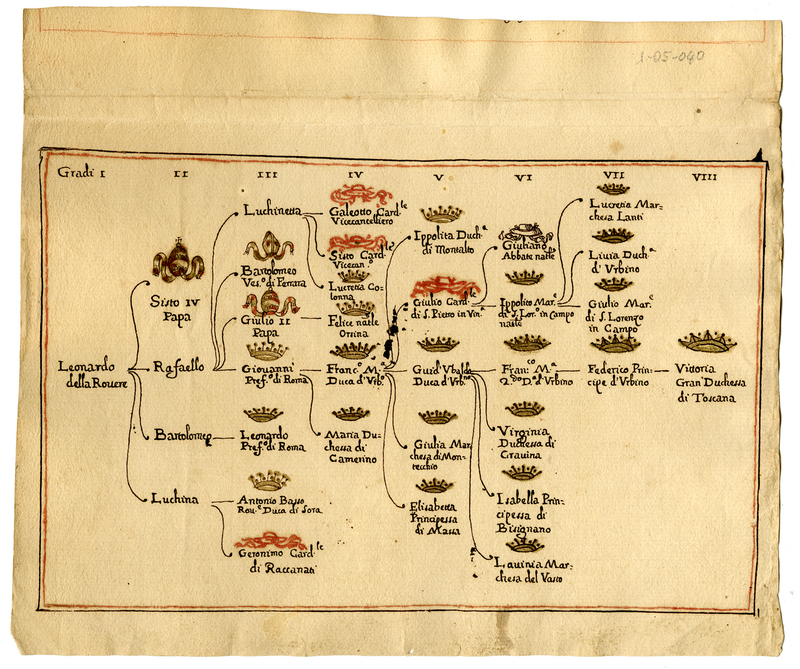 1-05-040
Gradi I II III IV V VI VII VIII
Leonardo
della Rouere
Sisto IV
Papa
Rafaello
Bartolomeo
Luchina
Luchinetta
Bartolomeo
Ves.º di Ferrara
Giulio II
Papa
Giouanni
Pref.º di Roma
Leonardo
Pref.º di Roma
Antonio Basso
Rou.e Duca di Sora
Geronimo Card.le
di Raccanati
Galeotto Card.le
Vicecancelliero
Sisto Card.le
Vicecan.º
Lucretia Co-
lonna
Felice natle
Orsina
Franc.º M.a
Duca d'Urb.º
Maria Du-
chessa di
Camerino
Ippolita Duch.a
di Montalto
Giulio Card.le
di S. Pietro in Vin.a
Guid' Vbaldo
Duca d'Urb.no
Giulia Mar-
chesa di Mon-
tecchio
Elisabetta
Principessa
di Massa
Giuliano
Abbate natle
Ippolito Mar.e
di S. Lor.º in Campo
natle
Fran.co M.a
2.do D.a d'Urbino
Virginia
Duchessa di
Grauina
Isabella Prin-
cipessa di
Bisignano
Lauinia Mar-
chesa del Vasto
Lucretia Mar-
chesa Lanti
Liuia Duch.a
d'Urbino
Giulio Mar.e
di S. Lorenzo
in Campo
Federico Prin-
cipe d'Urbino
Vittoria
Gran Duchessa
di Toscana